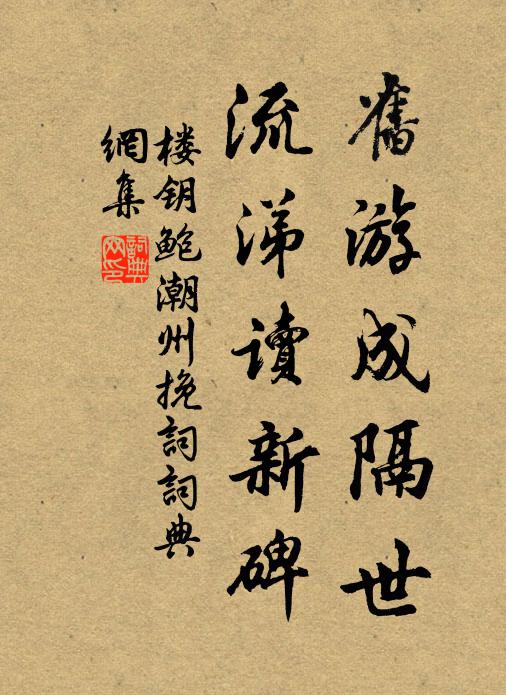 舊游成隔世
流涕讀新碑
楼钥鲍潮州挽詞詞典
網集
詞典网印